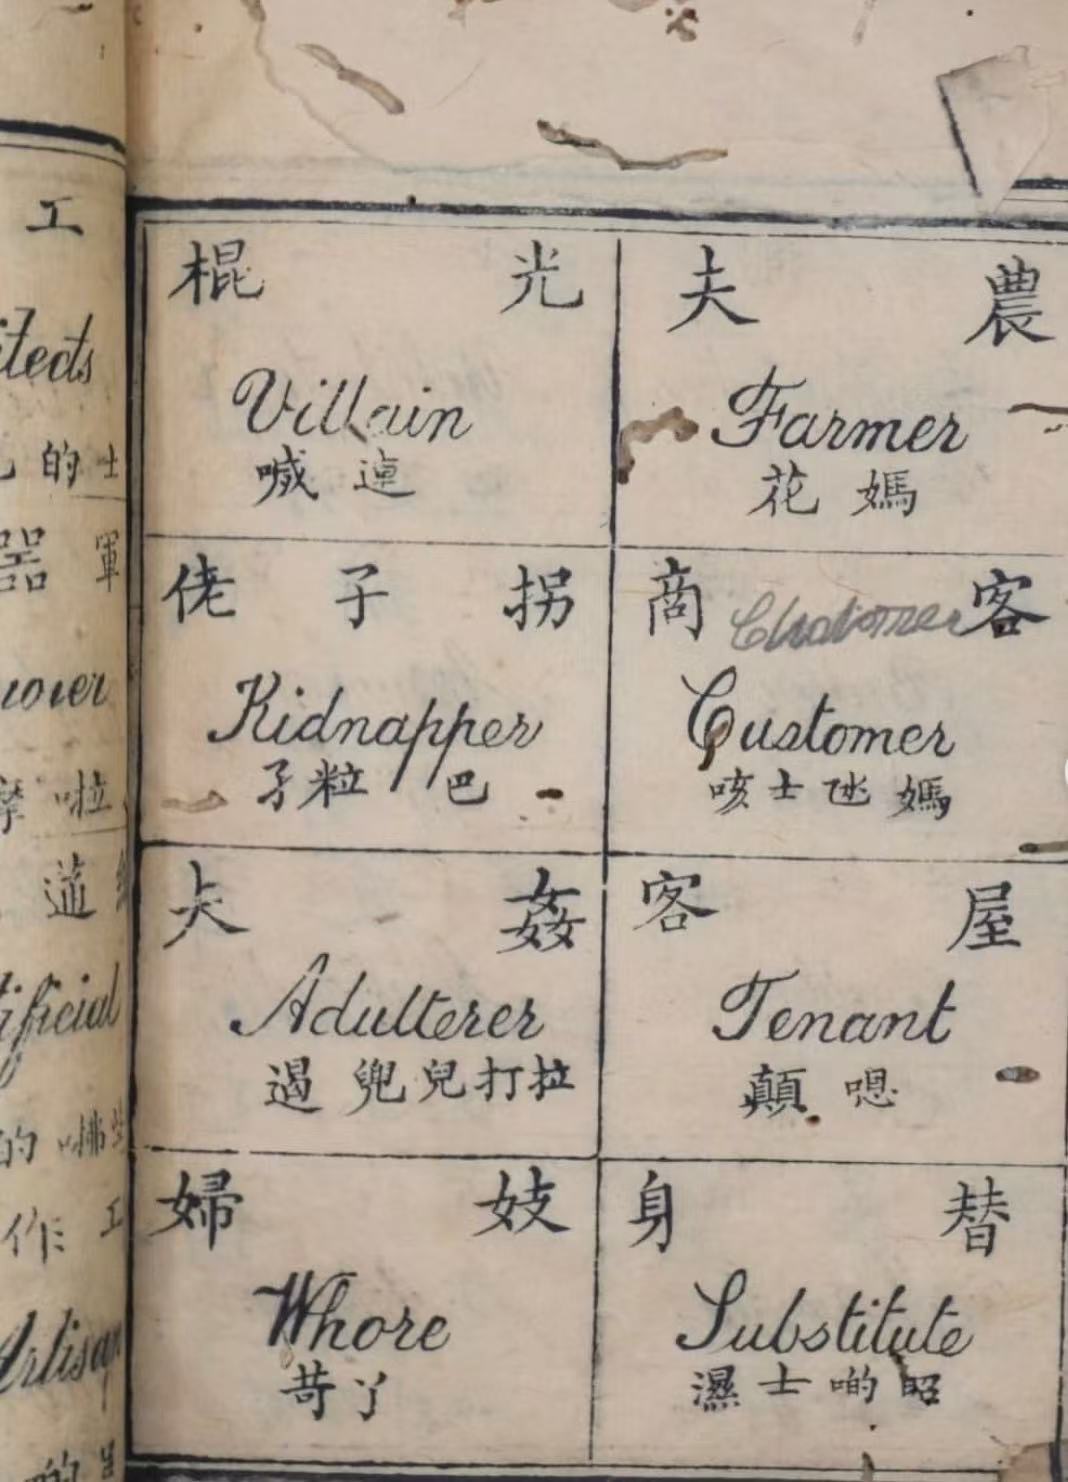 農夫
Farmer
花媽
客商
Customer
咳士氹媽
屋客
Tenant
顛嗯
替身
Substitute
濕士啲昭
光棍
Villain
喊連
拐子佬
Kidnapper
孑粒巴
姦夫
Adulterer
遏兜兒打拉
妓婦
Whore
苛丫
工
itects
的士
軍器
啦
道
tificial
的
工作
Artisan